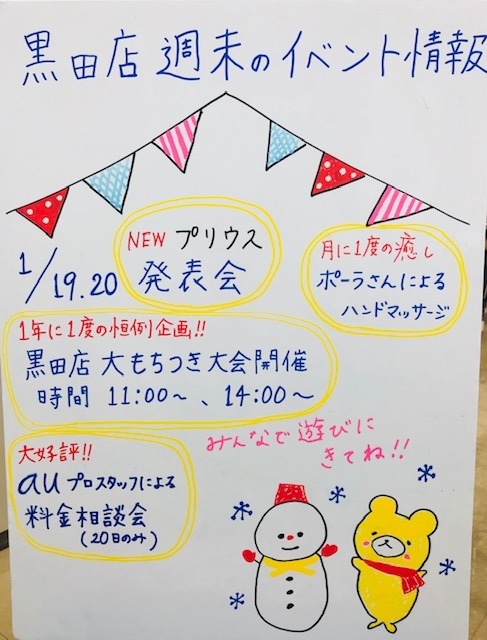 黒田店 週末のイベント情報
1/19.20
NEW プリウス
発表会
月に1度の癒し
ポーラさんによる
ハンドマッサージ
1年に1度の恒例企画!!
黒田店 大もちつき大会開催
時間 11:00～、14:00～
大好評!!
au プロスタッフによる
料金相談会
(20日のみ)
みんなで遊びに
きてね!!